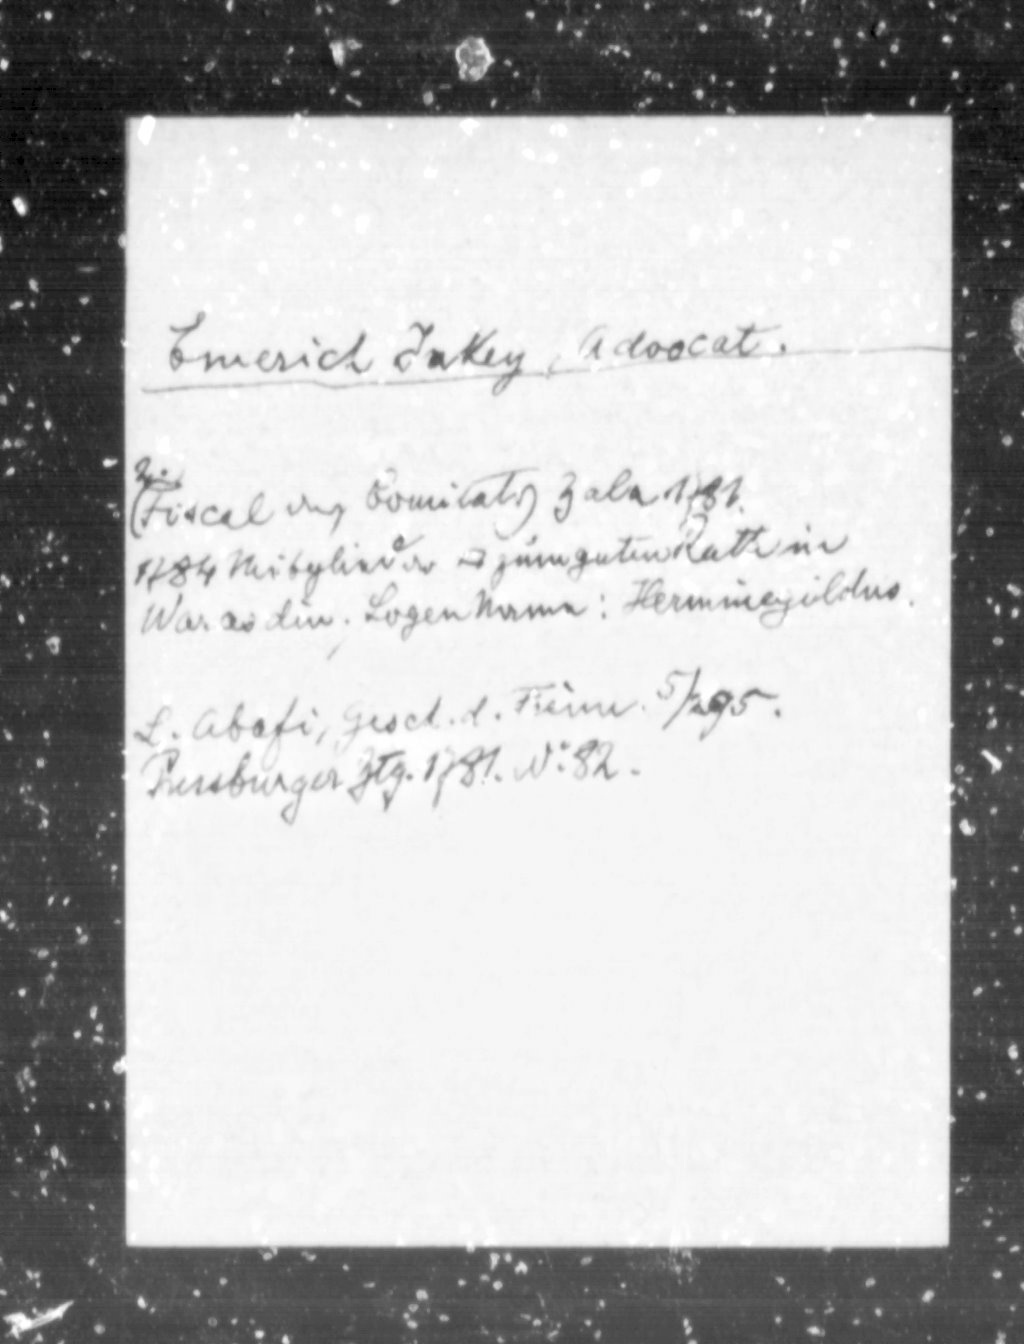 Emerich Inkey, Advocat.
(Fiscal des Comitats Zala 1781.
1784 Mitglied der □ zum guten Rath in
Warasdin. LogenName: Hermenegildus.
L. Abafi, Gesch. d. Freim. 5/295.
Pressburger Ztg. 1781. No. 82.